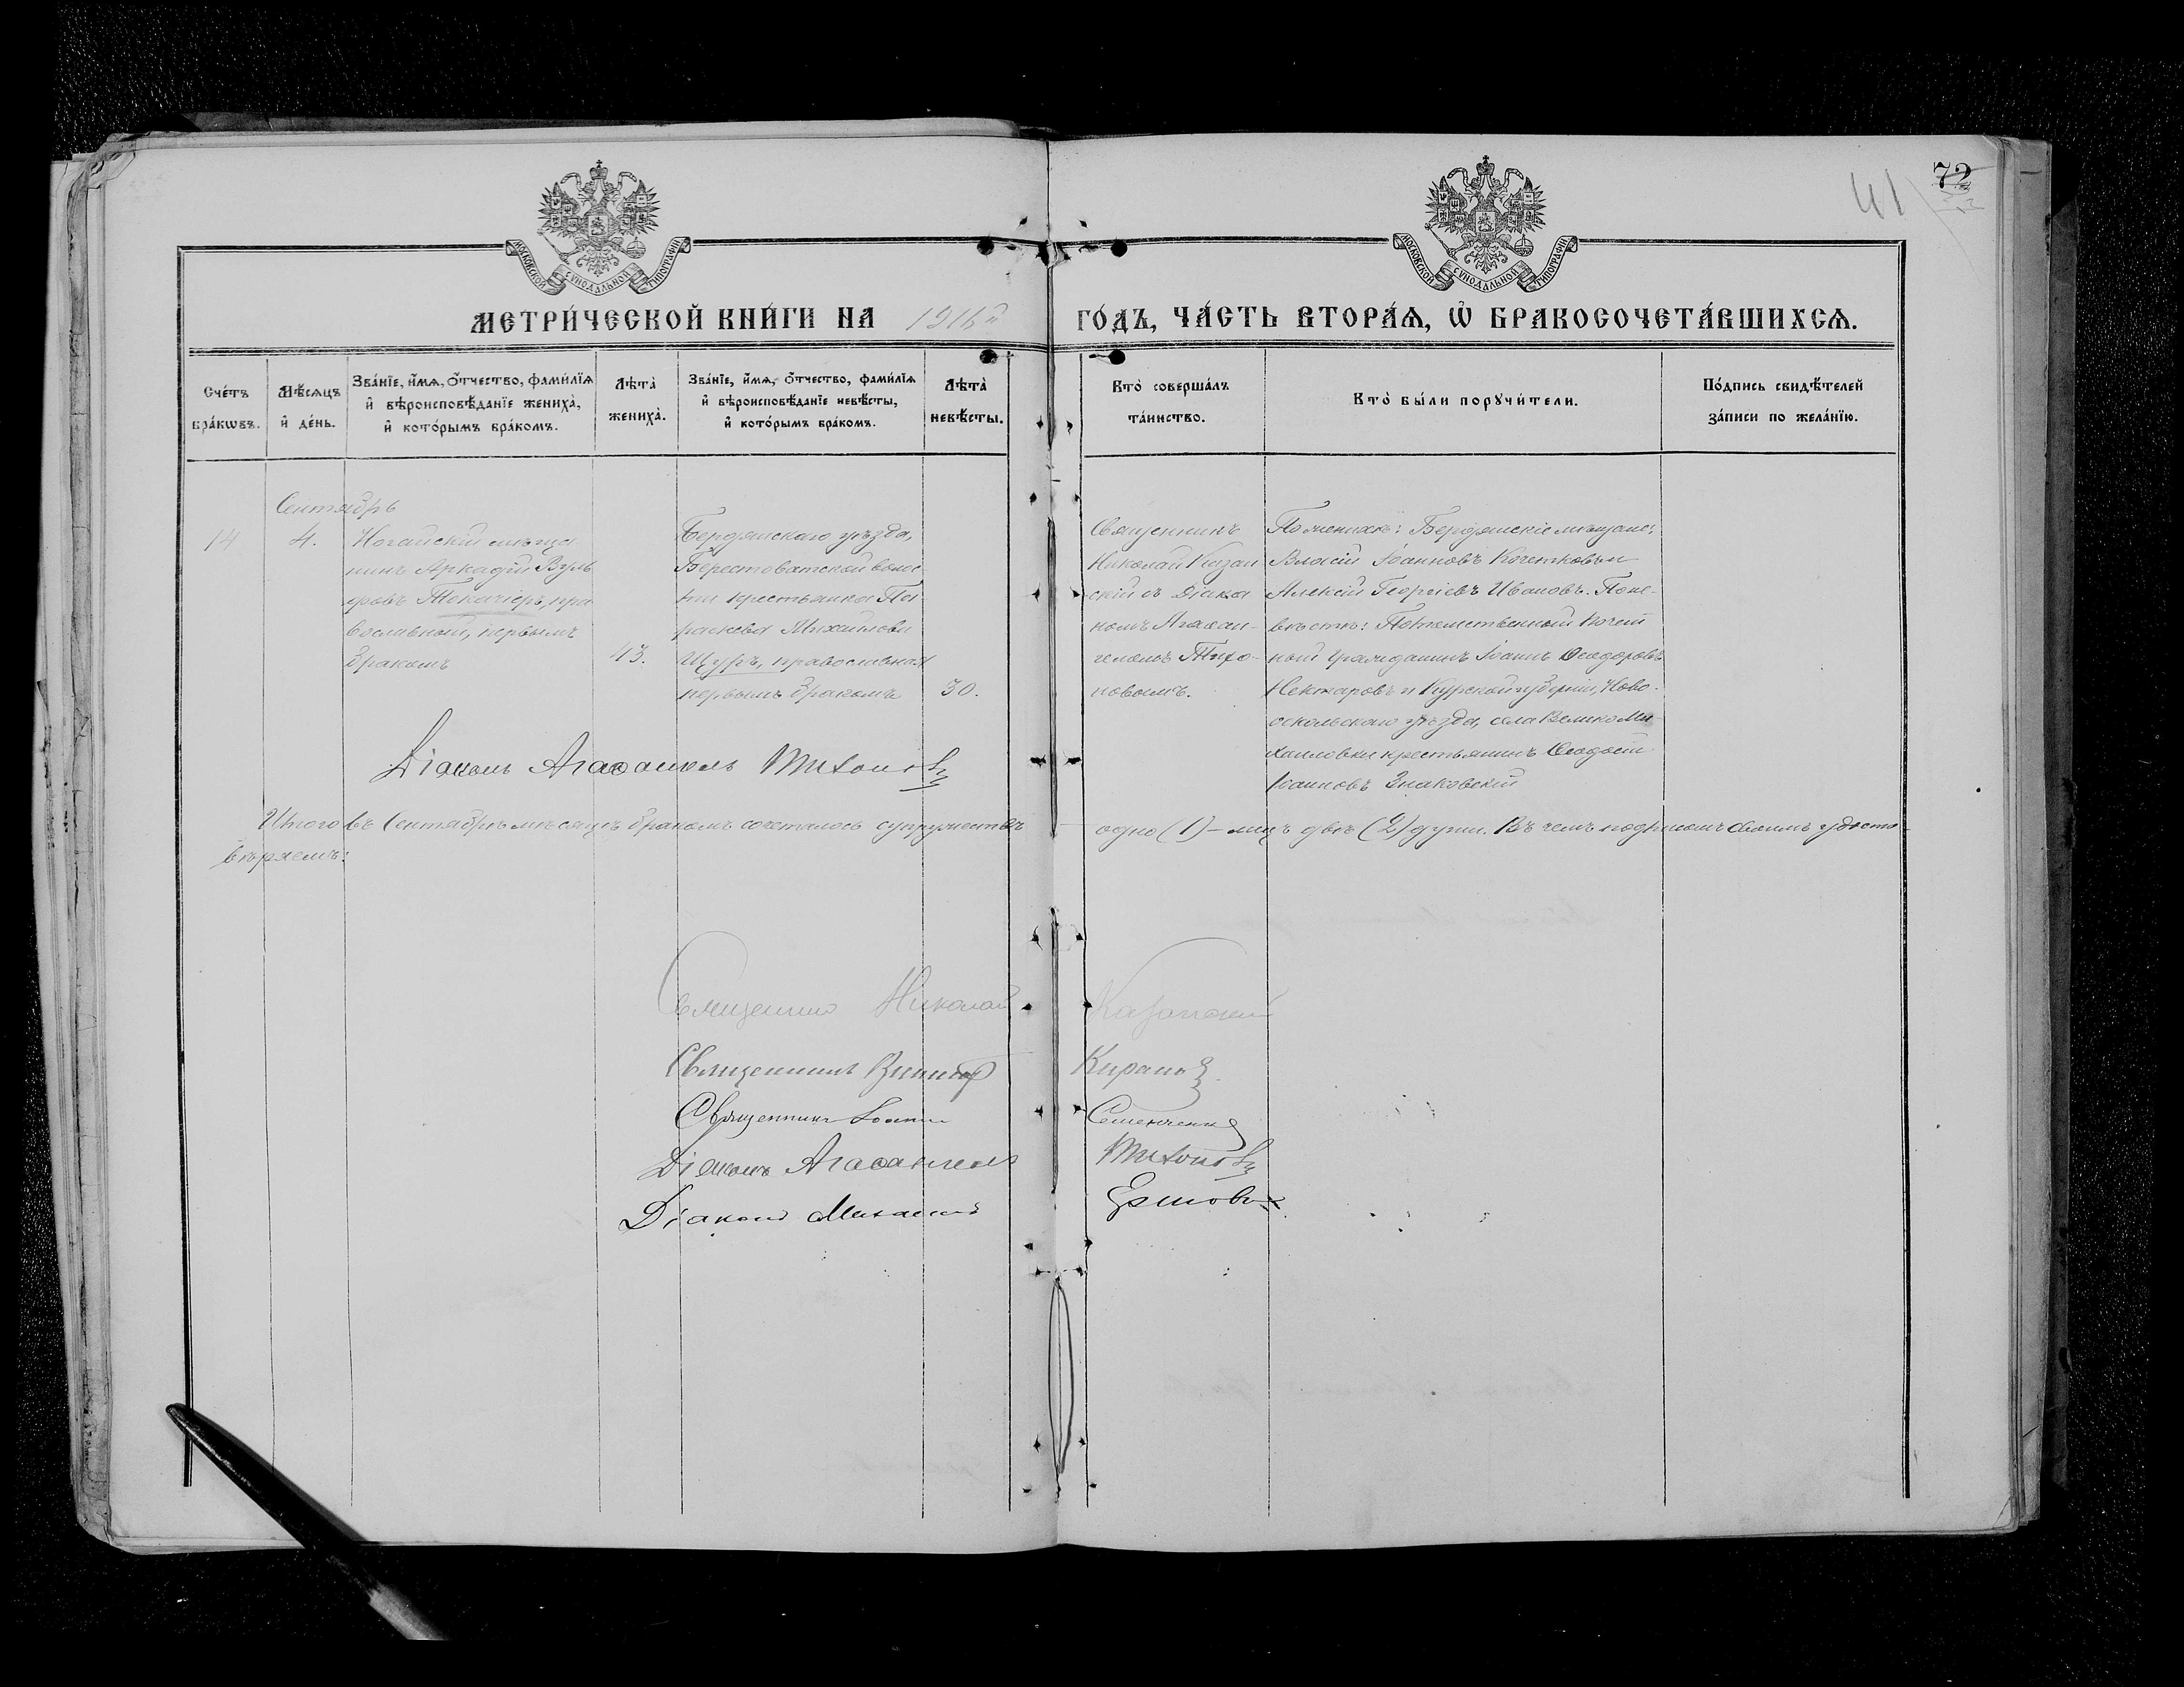 72
41
МОСКОВСКОЙ СѴНОДАЛЬНОЙ ТИПОГРАФІИ
МОСКОВСКОЙ СѴНОДАЛЬНОЙ ТИПОГРАФІИ
МЕТРИ́ЧЕСКОЙ КНИ́ГИ НА 1916й ГО́ДЪ, ЧА́СТЬ ВТОРА́Ѧ, Ѡ҆ БРАКОСОЧЕТА́ВШИХСѦ.
Сче́тъ бра́кѡвъ.
Мѣ́сѧцъ и҆ де́нь.
Зва́нїе, и҆́мѧ, ѻ҆́тчество, фами́лїѧ и҆ вѣроисповѣ́данїе жениха̀, и҆ кото́рымъ бра́комъ.
Лѣ́та̀ жениха̀.
Зва́нїе, и҆́мѧ, ѻ҆́тчество, фами́лїѧ и҆ вѣроисповѣ́данїе невѣ́сты, и҆ кото́рымъ бра́комъ.
Лѣ́та̀ невѣ́сты.
Кто̀ соверша́лъ та́инство.
Кто̀ бы́ли порꙋчи́тели.
По́дпись свидѣ́телей за́писи по жела́нїю.
Сентябрь
14
4.
Ногайскій мѣща
нинъ Аркадій
Токачіеръ, пра
вославный, первымъ
бракомъ
43.
Бердянскаго уѣзда,
Берестоватской волос
ти крестьянка Па
раскева Михайлова
Щуръ, православная
первымъ бракомъ
30.
Священникъ
Николай Казан
скій съ Діако
номъ Агаѳан-
геломъ Тихо-
новымъ.
По женихѣ: Бердянскіе мѣщане:
Власій Іоанновъ Кочетковъ и
Алексій Георгіевъ Ивановъ. По не-
вѣстѣ: Потомственный Почет
ный гражданинъ Іоаннъ Ѳеодоровъ
Нектаровъ и Курской губерніи, Ново-
оскольскаго уѣзда, села Велико Ми
хайловки крестьянинъ Ѳеодосій
Іоанновъ Знаковскій
Діаконъ Агаѳангелъ Тихоновъ
Итого въ Сентябрѣ мѣсяцѣ бракомъ сочеталось супружествъ одно (1) – лицъ двѣ (2) души. Въ чемъ подписомъ своимъ удосто-
вѣряемъ:
Священникъ Николай Казанскій
Священникъ Викторъ Кирановъ
Священникъ Іоаннъ Семенченко
Діаконъ Агаѳангелъ Тихоновъ
Діаконъ Михаилъ Ершовъ